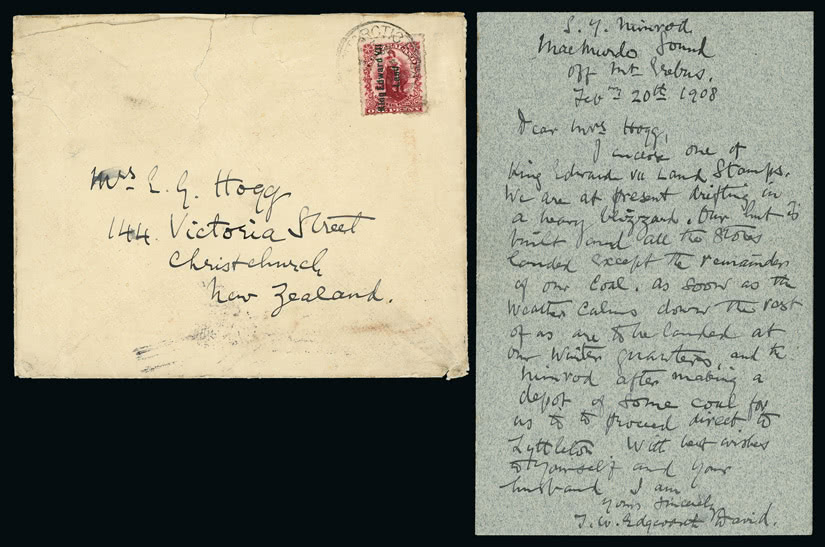 ARCTIC
King Edward VII
Land
Mrs E. G. Hogg
144 Victoria Street
Christchurch
New Zealand.
S. Y. Nimrod
MacMurdo Sound
off Mt Erebus.
Feby 20th 1908
Dear Mrs Hogg,
I enclose one of
King Edward VII Land Stamps.
We are at present drifting in
a heavy blizzard. Our hut is
built and all the stores
landed except the remainder
of our coal. As soon as the
weather calms down the rest
of us are to be landed at
our winter quarters, and the
Nimrod after making a
depot of some coal for
us to to proceed direct to
Lyttleton With best wishes
to yourself and your
husband I am
Yours sincerely
T. W. Edgeworth David.